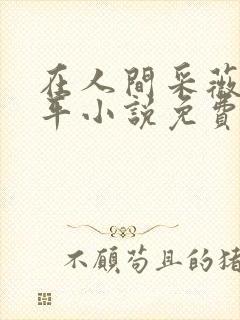 在人間采薇
年小説免費
不顧苟且的猪